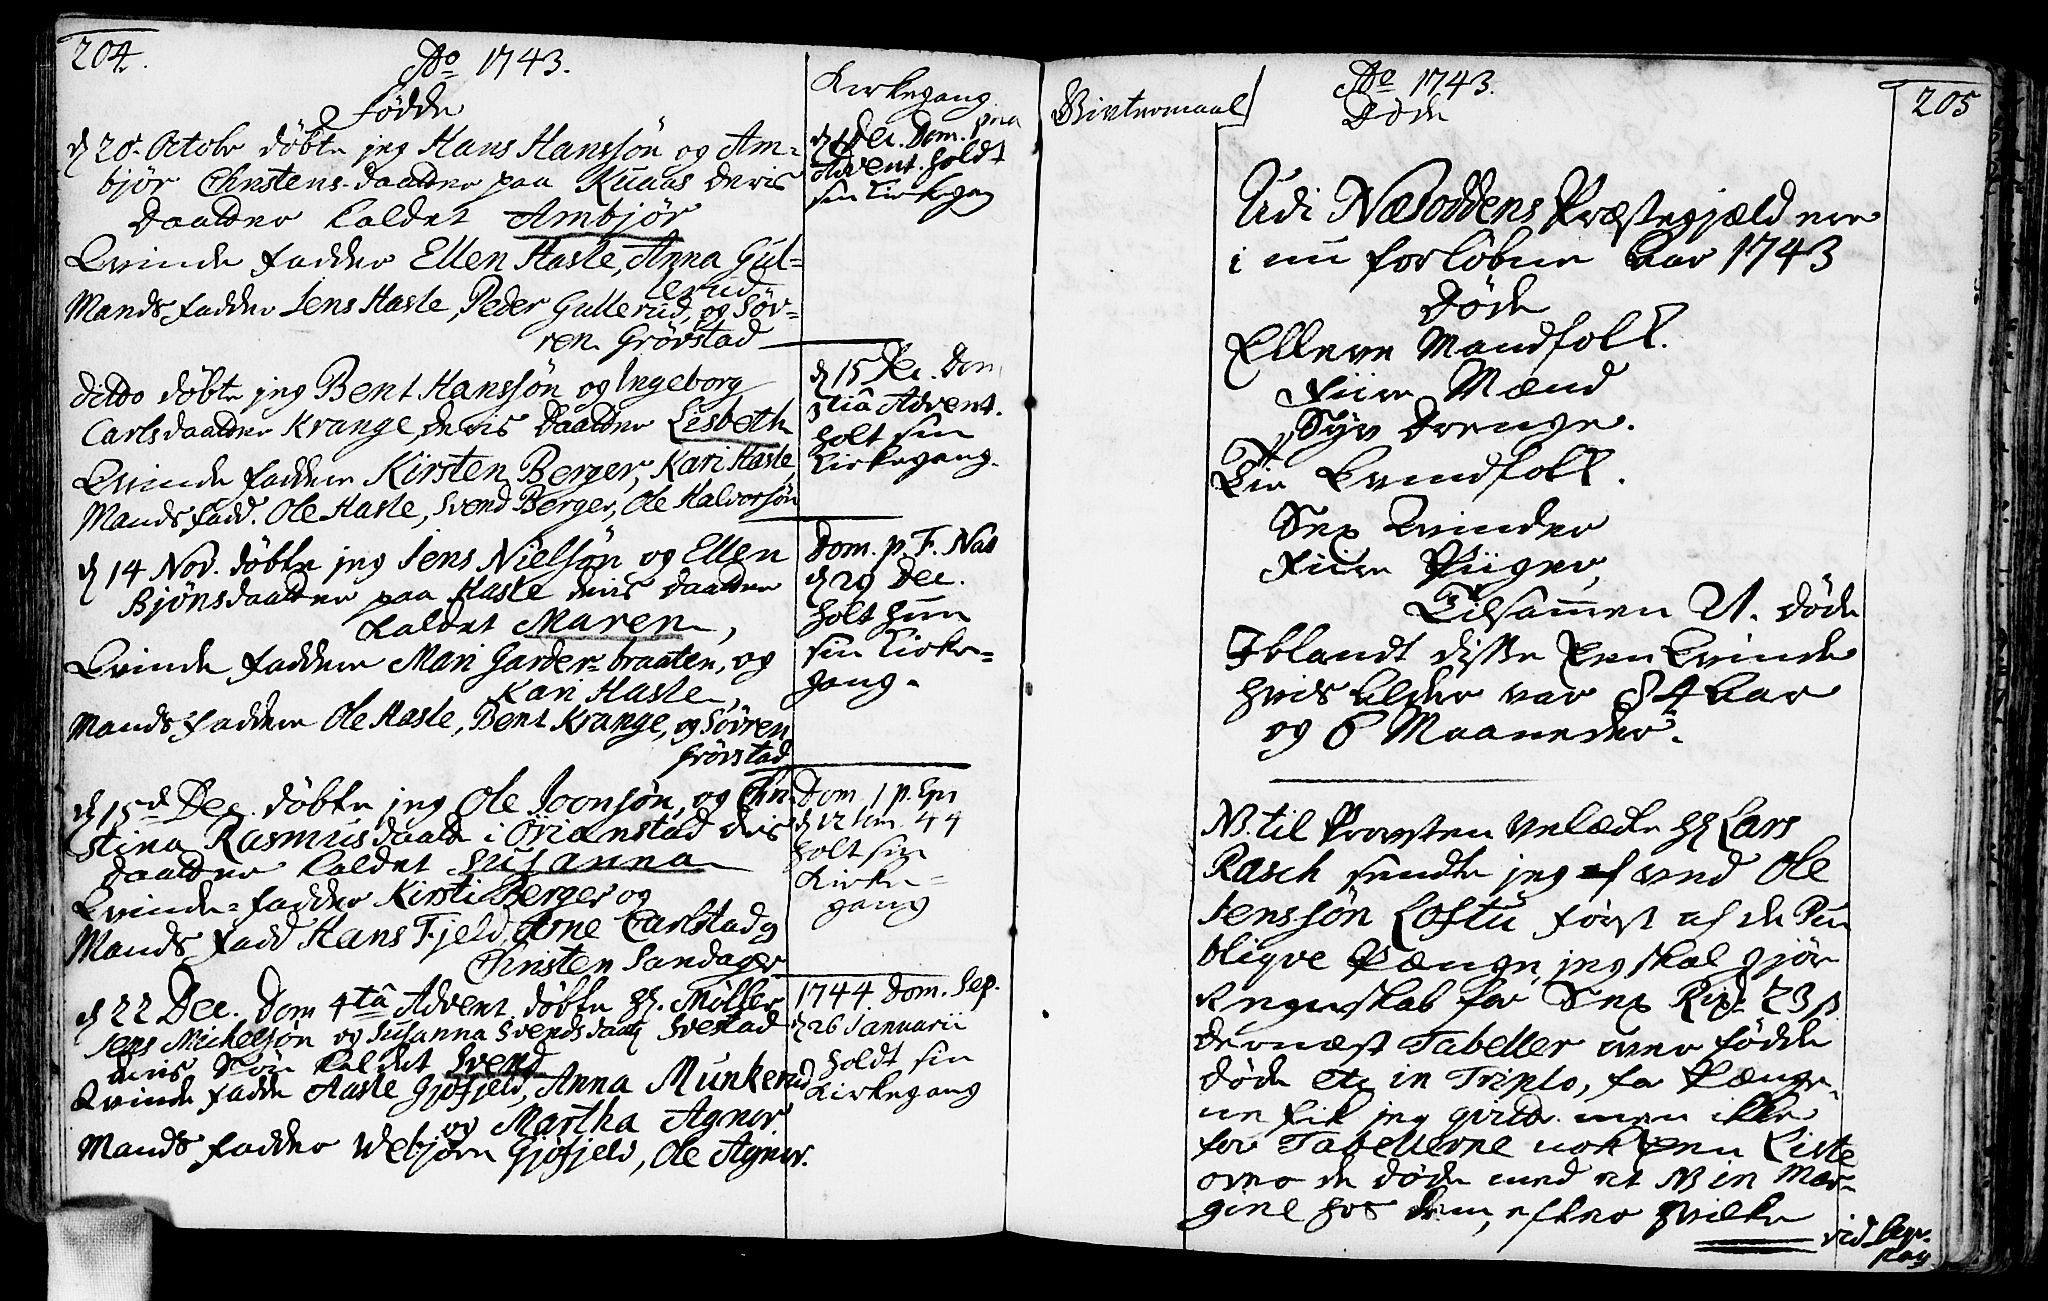 204.
Ao 1743.
Fødde
d 20. Octobr døbte jeg Hans Hanssøn og Am=
bjør Christens-daatter paa Kuaas deris
daatter kaldet Ambjør
Qvinde faddre Ellen Hasle, Anna Gul=
lerud
Mands-faddre Jens Hasle, Peder Gullerud, og Søv=
ren Grøvstad
ditto døbte jeg Bent Hanssøn og Ingeborg
Carlsdaatter Krange, deris Daatter Lisbeth
Qvinde faddere Kirsten Berger, Kari Hasle
Mands fadd. Ole Hasle, Svend Berger, Ole Halvorsøn
d 14 Nov. døbte jeg Jens Nielsøn og Ellen
Bjønsdaatter paa Hasle deris daatter
kaldet Maren,
Qvinde faddere Mari Garder=braaten, og
Kari Hasle,
Mands faddere Ole Hasle, Bent Krange, og Søvren
Grøvstad
d 15d Dec. døbte jeg Ole Joonsøn, og Chri
stina Rasmusdaatt i Oriænstad deris
daatter kaldet Susanna
Qvinde=faddre Kirsti Berger og
Mands fadd Hans Fjeld, Arne Carlstad og
Christen Sandager
d 22 Dec. Dom 4ta Advent døbte Hr. Møller
Jens Michelsøn og Susanna Svendsdaatt Svestad
deris Søn kaldet Svend
Qvinde fadde Aasle Gjøfjeld, Anna Munkerud
og Martha Agnor
Mands faddre Webjørn Gjøfjeld, Ole Agnor.
Kirkegang
d 1 Dec. Dom. pria
Advent. holdt
sin Kirkegang
d 15 Dec. Dom.
3tia Advent.
holt sin
Kirkegang.
Dom. p F. Nat
d 29 Dec.
holt hun
sin Kirke=
gang.
Dom 1 p. Epi
d 12 Jan. 44
holt sin
Kirke=
gang
1744 Dom. Sep.
d 26 Januarii
holdt sin
Kirkegang
Vintermaal
Ao 1743.
Døde
205
Udi Næsoddens Præstegjæld ere
i nu forløbne Aar 1743
Døde
Elleve Mandfolk.
Fiire Mænd
Syv Drenge.
Tie Qvindfolk.
Sex Qvinder
Fiire Piiger,
Tilsam̅en 21. døde
Iblandt disse Een Qvinde
hvis Alder var 84 Aar
og 6 Maaneder.
NB. til Provsten Velædle Hr Lars
Rasch sendte jeg af ved Ole
Jenssøn Loftu først af de Pu
bliqve Pænge, jeg skal gjøre
Regnskab for Sex Rixdr 23 ß
dernæst Tabeller over fødde
døde etc in Triplo, for Pænge=
ne fik jeg qvitt. men ikke
for Tabellerne nok een Liste
over de døde med et NB in Mar=
gine hos dem, efter hvilke
vid